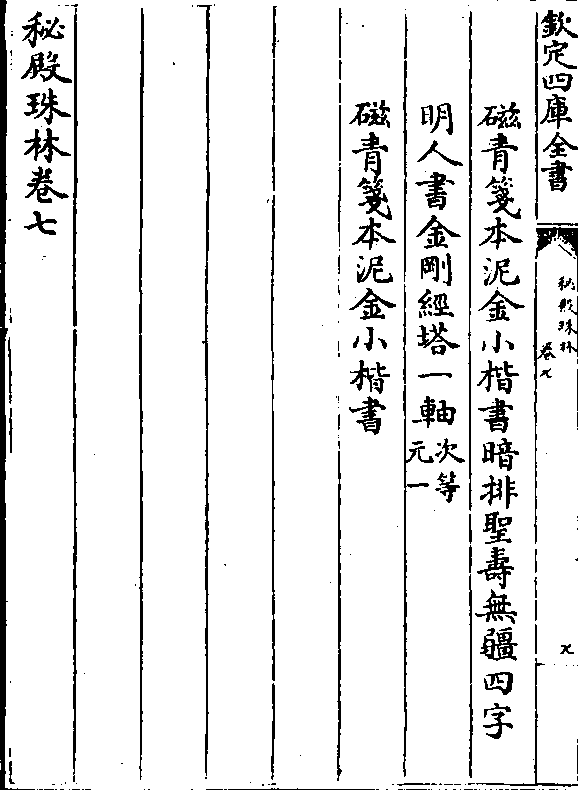 欽定四庫全書
秘殿珠林
卷七
九
磁青箋本泥金小楷書暗排聖壽無疆四字
明人書金剛經塔一軸次等
元一
磁青箋本泥金小楷書
秘殿珠林卷七